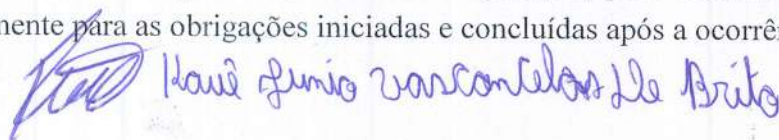 mente para as obrigações iniciadas e concluídas após a ocorrên
Kauê Junio Vasconcelos De Brito